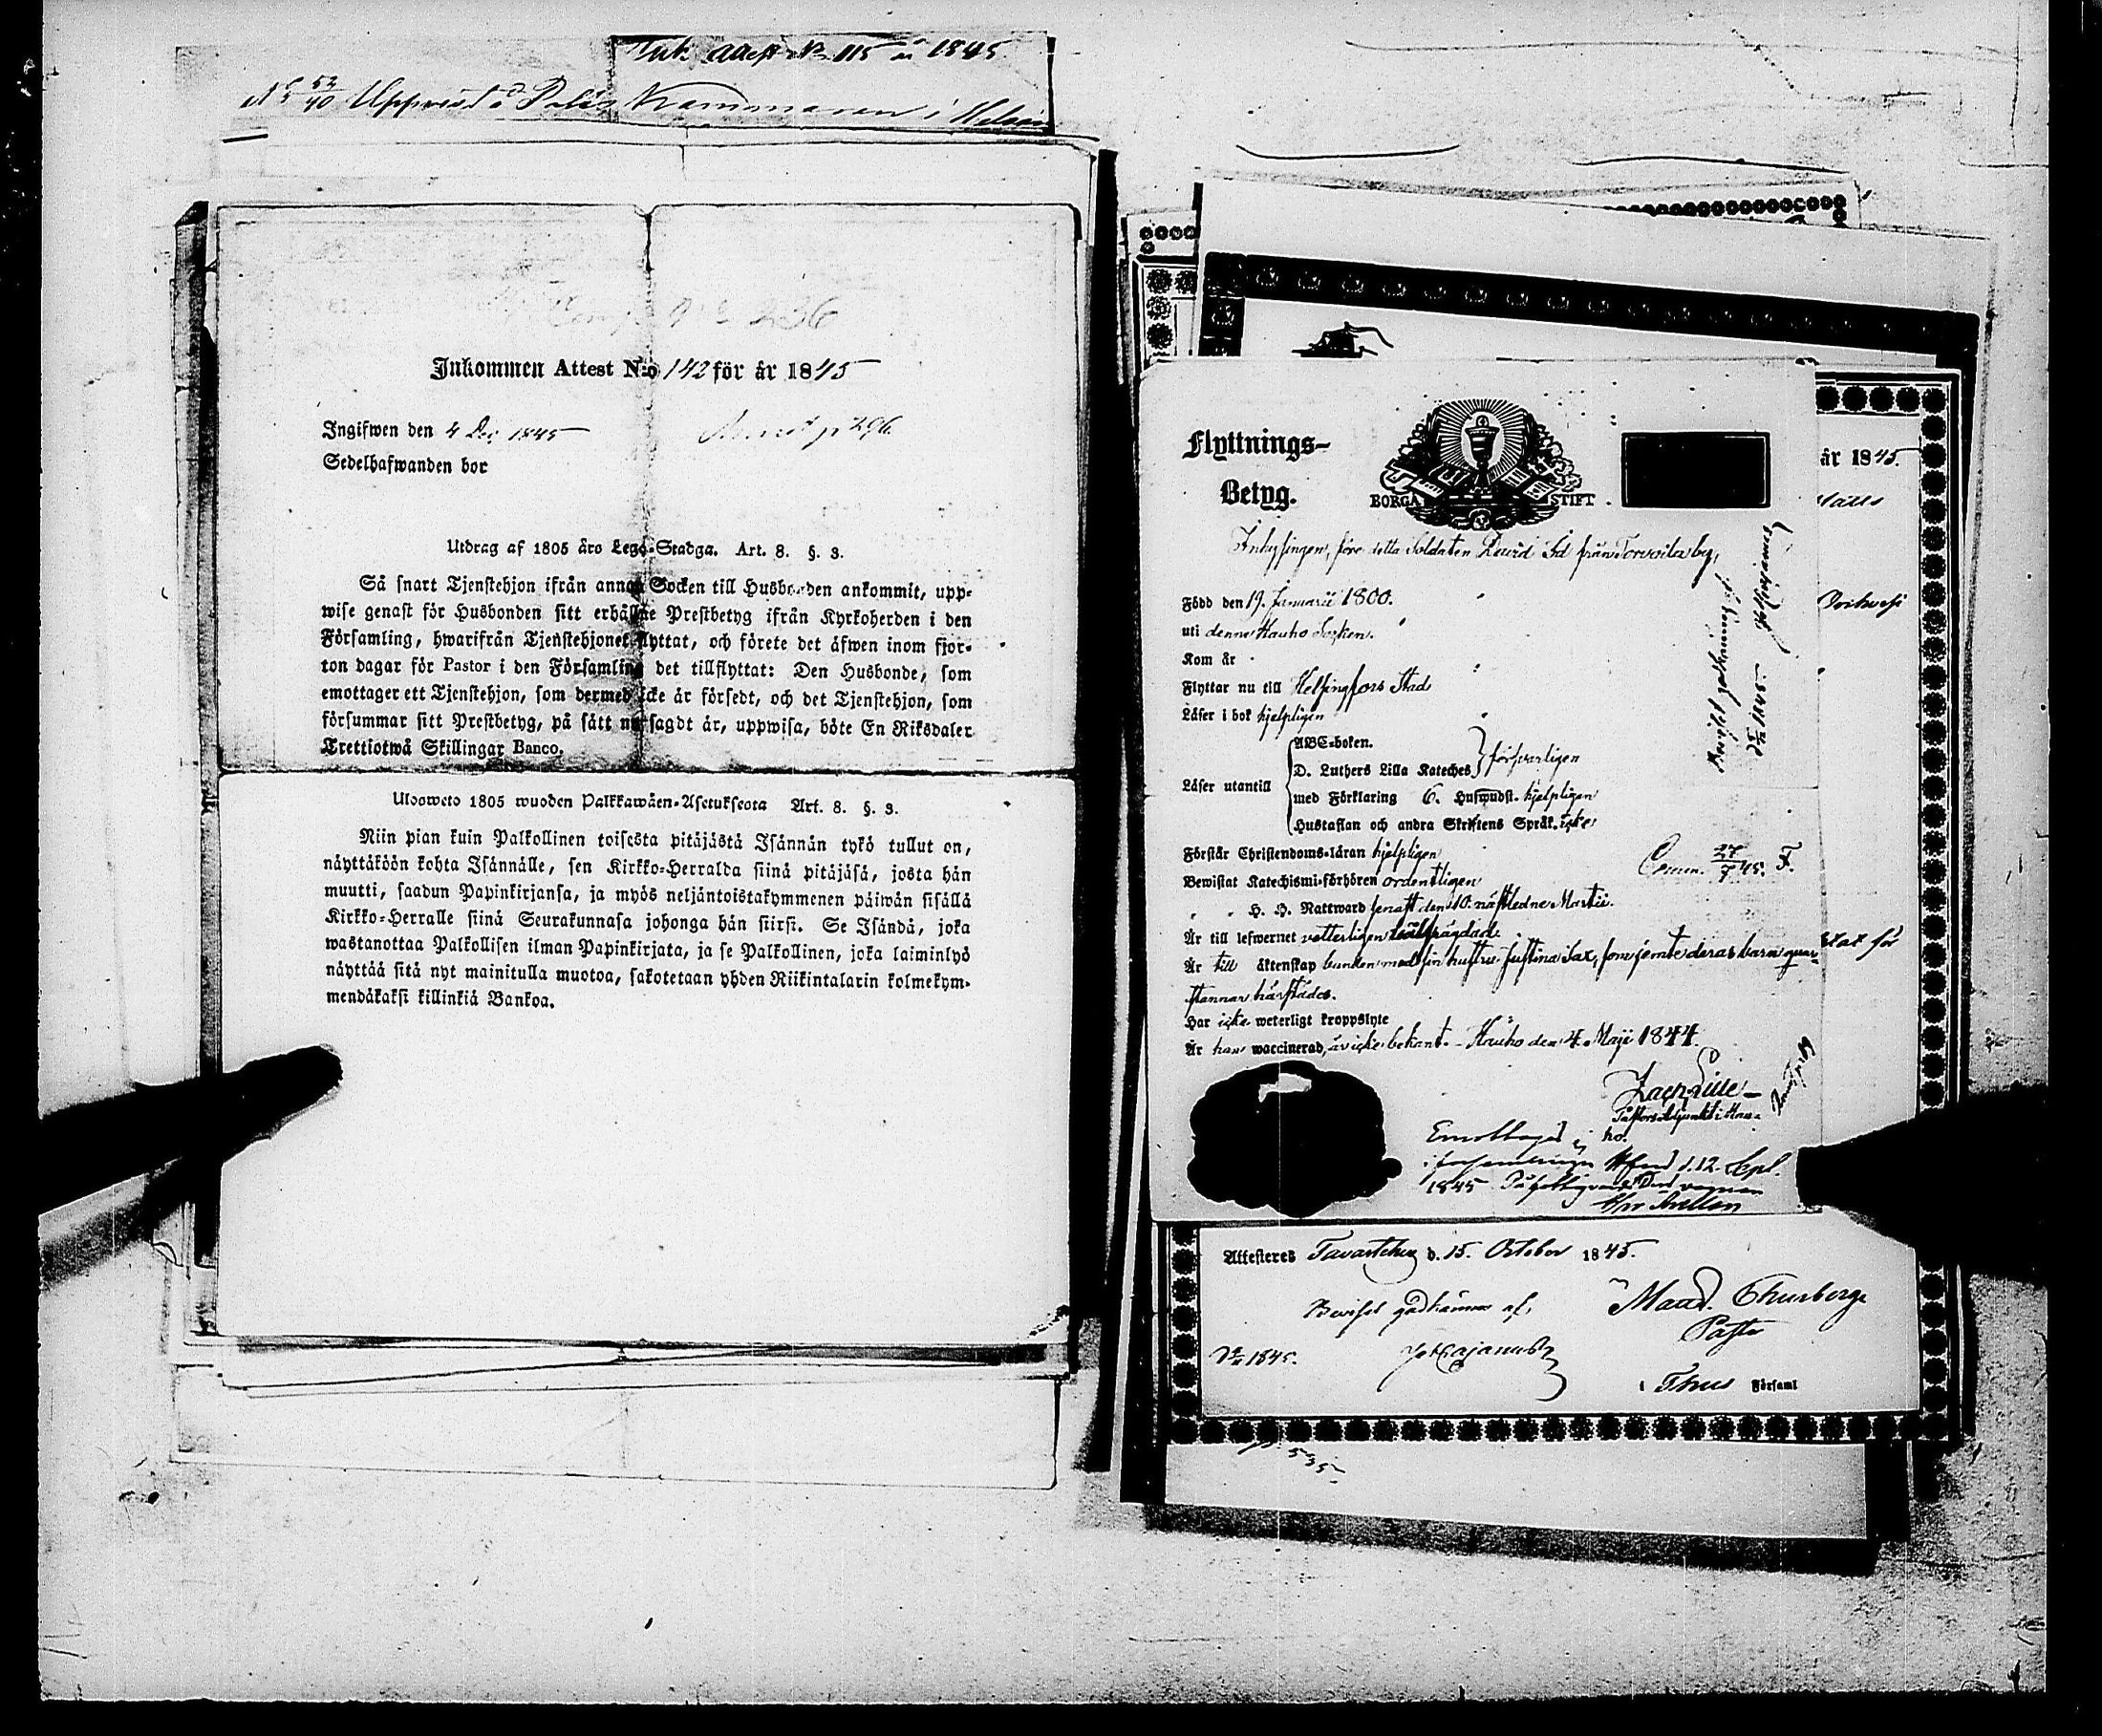 Ink. Attest No 115 år 1845.
No 52/40 Uppvist å Polis Kammaren i Helsin
236
Inkommen Attest N:o 142 för år 1845
Ingifwen den 4 Dec 1845
p 296.
Sedelhafwanden bor
Utdrag af 1805 års Lego-Stadga. Art. 8. §. 3.
Så snart Tjenstehjon ifrån annan Socken till Husbonden ankommit, upp-
wise genast för Husbonden sitt erhållne Prestbetyg ifrån Kyrkoherden i den
Församling, hwarifrån Tjenstehjonet flyttat, och förete det äfwen inom fjor-
ton dagar för Pastor i den Församling det tillflyttat: Den Husbonde, som
emottager ett Tjenstehjon, som dermed icke är försedt, och det Tjenstehjon, som
försummar sitt Prestbetyg, på sätt nu sagdt är, uppwisa, böte En Riksdaler
Trettiotwå Skillingar Banco.
Ulosweto 1805 wuoden Palkkawäen-Asetuksesta Art. 8. §. 3.
Niin pian kuin Palkollinen toisesta pitäjästä Isännän tykö tullut on,
näyttäköön kohta Isännälle, sen Kirkko-Herralda siinä pitäjäsä, josta hän
muutti, saadun Papinkirjansa, ja myös neljäntoistakymmenen päiwän sisällä
Kirkko-Herralle siinä Seurakunnasa johonga hän siirsi. Se Isändä, joka
wastanottaa Palkollisen ilman Papinkirjata, ja se Palkollinen, joka laiminlyö
näyttää sitä nyt mainitulla muotoa, sakotetaan yhden Riikintalarin kolmekym-
mendäkaksi killinkiä Bankoa.
Flyttnings-
Betyg.
BORGÅ STIFT.
Inhysingen, före detta Soldaten David Sd från Torvoila by,
Född den 19. Januarii 1800.
uti denne Hauho Socken.
Kom år
Flyttar nu till Helsingfors Stad
Läser i bok hjelpligen
Läser utantill
ABC-boken.
D. Luthers Lilla Kateches } försvarligen
med Förklaring 6. Hufwudst. hjelpligen
Hustaflan och andra Skriftens Språk. icke
Förstår Christendoms-läran hjelpligen
Bewistat Katechismi-förhören ordentligen
" " H. H. Nattward senast den 10. nästledne Martii.
Är till lefwernet vetterligen wälfrägdad.
Är till äktenskap bunden med sin hustru Justina Sax, som jemte deras barn qvar-
stannar härstädes.
Har icke weterligt kroppslyte
Är han waccinerad, är icke bekant. - Hauho den 4. Maji 1844.
Comm. 27/7 45. F.
Zach. Lille
Pastors Adjunkt i Hau-
ho.
Emottaget
i församlingen d. 12. Sept.
1845
år 1845.
Attesteres Tavastehus d. 15. October 1845.
Beviset godkännes af,
Maud. Thurberge
Past
1845.
i Thus Församl
p. 535